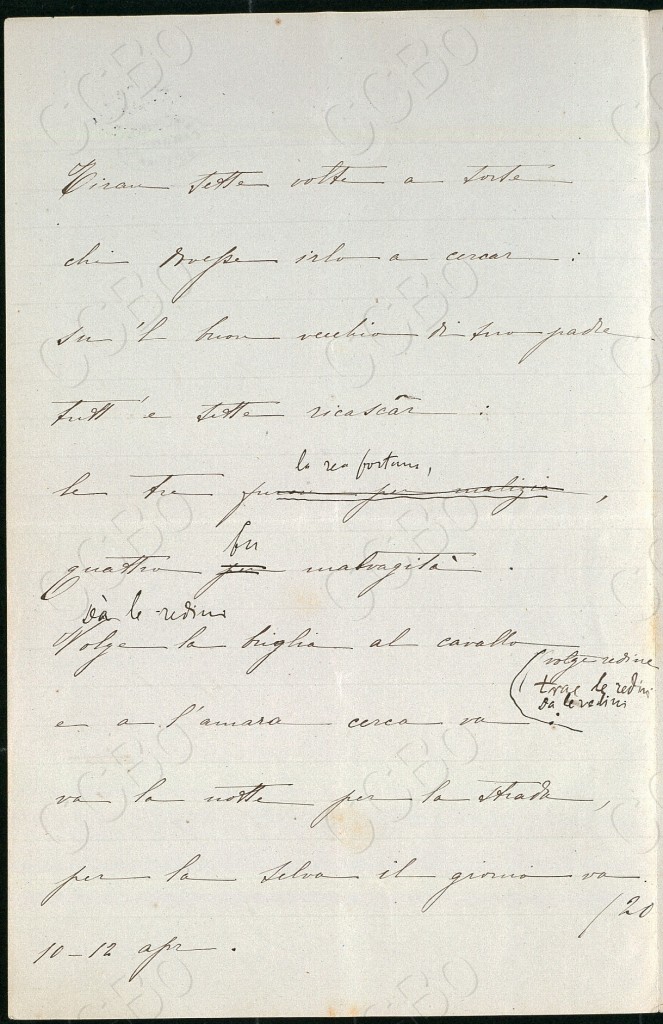 Tiran sette volte a sorte
chi dovesse irlo a cercar :
su 'l buon vecchio di suo padre
tutt' e sette ricascâr :
la rea fortuna,
le tre furon per malizia,
fu
quattro per malvagità .
Dà le redini
Volge la briglia al cavallo
(volge redine
trae le redini
e a l'amara cerca va :
Da le redini
va la notte per la strada,
per la selva il giorno va.
/20
10-12 apr .